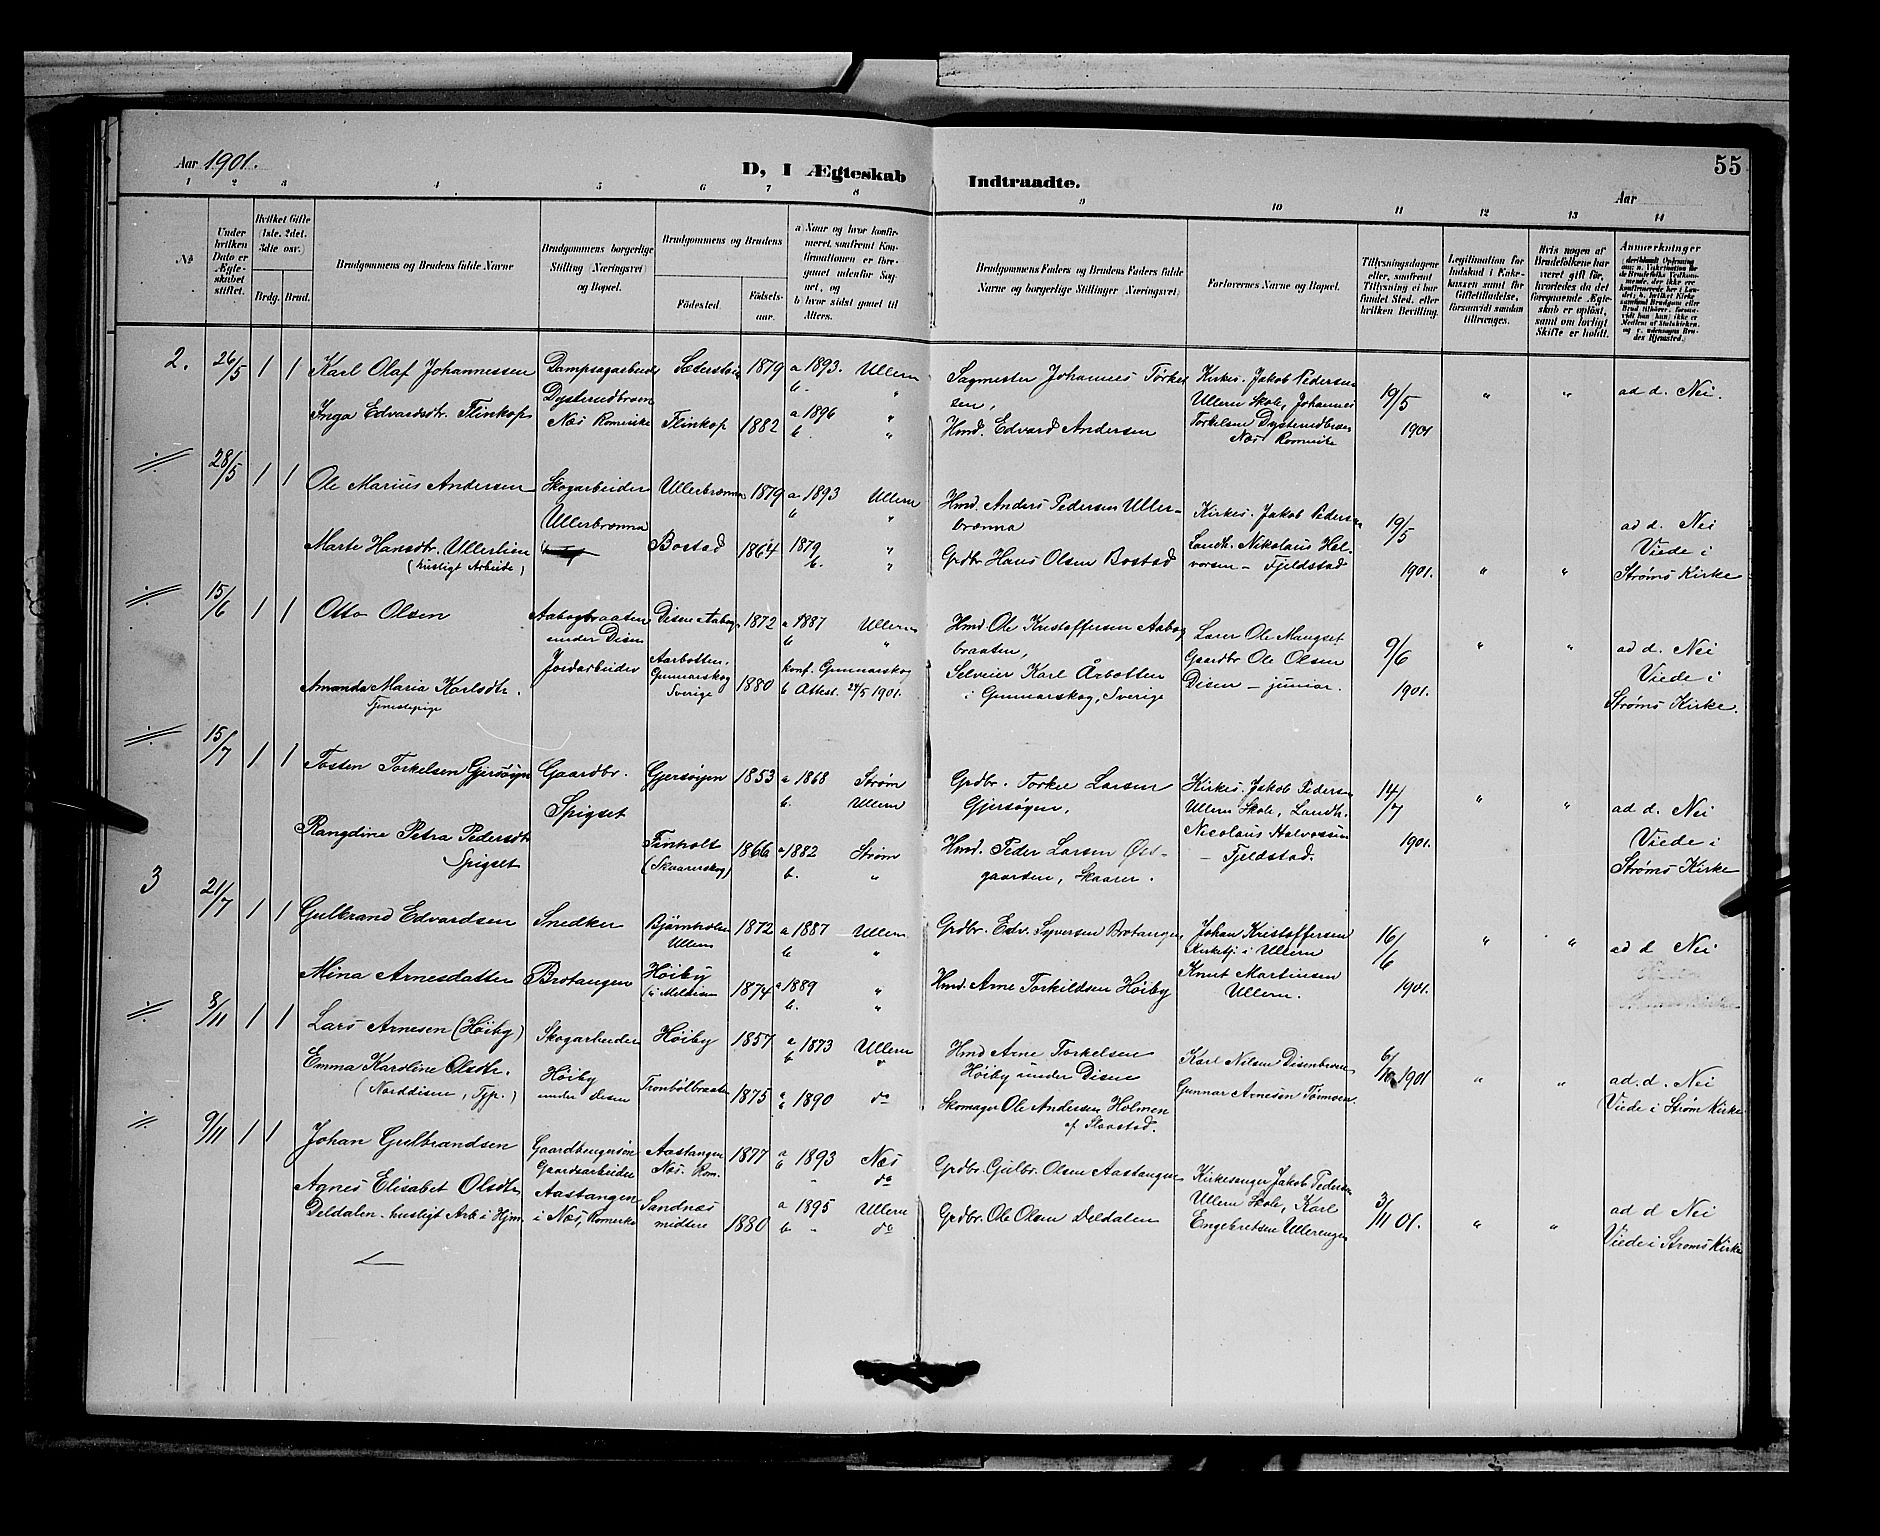 Aar 1901.
D, I Ægteskab Indtraadte.
55
Aar
1 2 3 4 5 6 7 8 9 10 11 12 13 14
№
Under hvilken Dato er Ægteskabet stiftet.
Hvilket Gifte 1ste, 2det, 3die osv.
Brdg. Brud.
Brudgommens og Brudens fulde Navne
Brudgommens borgerlige Stilling (Næringsvei) og Bopæl.
Brudgommens og Brudens
Fødested.
Fødselsaar.
a Naar og hvor konfirmeret, saafremt Konfirmationen er foregaaet udenfor Sognet, og
b hvor sidst gaaet til Alters.
Brudgommens Faders og Brudens Faders fulde Navne og borgerlige Stillinger (Næringsvei)
Forlovernes Navne og Bopæl.
Tillysningsdagene eller, saafremt Tillysning ei har fundet Sted, efter hvilken Bevilling.
Legitimation for Indskud i Enkekassen samt for Giftetilladelse, forsaavidt saadan tiltrænges.
Hvis nogen af Brudefolkene har været gift før, hvorledes da det foregaaende Ægteskab er opløst, samt om lovligt Skifte er holdt.
Anmærkninger
2. 26/5 1 1 Karl Olaf Johannessen
Dampsagarbeid
Dysterudbroen
Næs Romerike
1879 a 1893. Ullern
b. "
Sagmester Johannes Torkelsen,
Kirkes. Jakob Pedersen
Ullern Skole, Johannes
Torkelsen Dysterudbroen
Næs Romerike
19/5 1901
" "
ad d. Nei.
Inga Edvardsdtr. Flinkop
Flinkop 1882 a 1896 "
b. "
Hmd. Edvard Andersen
28/5 1 1 Ole Marius Andersen
Skogarbeider
Ullerbrænna
Ullerbrænna 1879 a 1893 Ullern
b "
Hmd. Anders Pedersen Ullerbrænna
Kirkes. Jakob Pedersen
Landh. Nikolaus Halvorsen - Fjeldstad
19/5 1901.
" "
ad d. Nei
Viede i
Strøms Kirke
Marte Hansdtr. Ullerlien
(husligt Arbeide)
Bostad 1864 1879 "
b. "
Grdbr Hans Olsen Bostad
15/6 1 1 Otto Olsen
Aabogbraaten
under Disen
Jordarbeider
Disen Aabog 1872 a 1887 Ullern
b "
Hmd Ole Kristoffersen Aabogbraaten,
Lærer Ole Mangset
Gaardbr Ole Olsen
Disen - junior.
9/6 1901.
" "
ad d. Nei
Viede i
Strøms Kirke.
Amanda Maria Karlsdtr.
Tjenestepige
Aarbotten,
Gunnarskog
Sverige
1880 konf. Gunnarskog
b Attest. 24/5 1901.
Selveier Karl Årbotten
i Gunnarskog, Sverige
15/7 1 1 Tosten Torkelsen Gjersøyen
Gaardbr.
Spigset
Gjersøyen 1853 a 1868 Strøm
b. Ullern
Grdbr. Torkel Larsen
Gjersøyen.
Kirkes. Jakob Pedersen
Ullern Skole, Landh.
Nicolaus Halvorsen
- Fjeldstad.
14/7 1901.
" "
ad d. Nei
Viede i
Strøms Kirke
Rangdine Petra Pedersdtr
Spigset
Finholt
(Skaarerskog)
1866 a 1882 Strøm
b. "
Hmd. Peder Larsen Østgaarden, Skaarer.
3 21/7 1 1 Gulbrand Edvardsen
Snedker
Brotangen
Bjørnholen
Ullern
1872 a 1887 Ullern
b "
Grdbr. Edv. Syversen Brotangen
Johan Kristoffersen
Kirketj. i Ullern
Knut Martinsen
Ullern.
16/6 1901.
" "
ad d Nei
Mina Arnesdatter
Høiby
1874 a 1889 "
b. "
Hmd. Arne Torkildsen Høiby
8/11 1 1 Lars Arnesen (Høiby)
Skogarbeider
Høiby
under Disen
Høiby 1857 a b 1873 Ullern
"
Hmd Arne Torkelsen
Høiby under Disen
Karl Nilsen Disenbroen
Gunnar Arnesen Tørmoen
6/10 1901
" "
ad. d. Nei
Viede i Strøm Kirke
Emma Karoline Olsdtr.
(Norddisen, Tjp.)
Tronbølbraaten 1875 a b 1890 do
Skomager Ole Andersen Holmen
af Slaastad.
9/11 1 1 Johan Gulbrandsen
Gaardbrugersøn
Gaardsarbeider
Aastangen
i Næs, Romerike
Aastangen
Næs. Rom.
1877 a b 1893 Næs
" do
Grdbr. Gulbr. Olsen Aastangen
Kirkesanger Jakob Pedersen
Ullern Skole, Karl
Engebretsen Ullerengen
3/11 01.
" "
ad d Nei
Viede i Strøms Kirke
Agnes Elisabet Olsdtr
Deldalen - husligt Arb. i Hjm.
Sandnæs
midtre
1880 a 1895 Ullern
b " do
Grdbr. Ole Olsen Deldalen